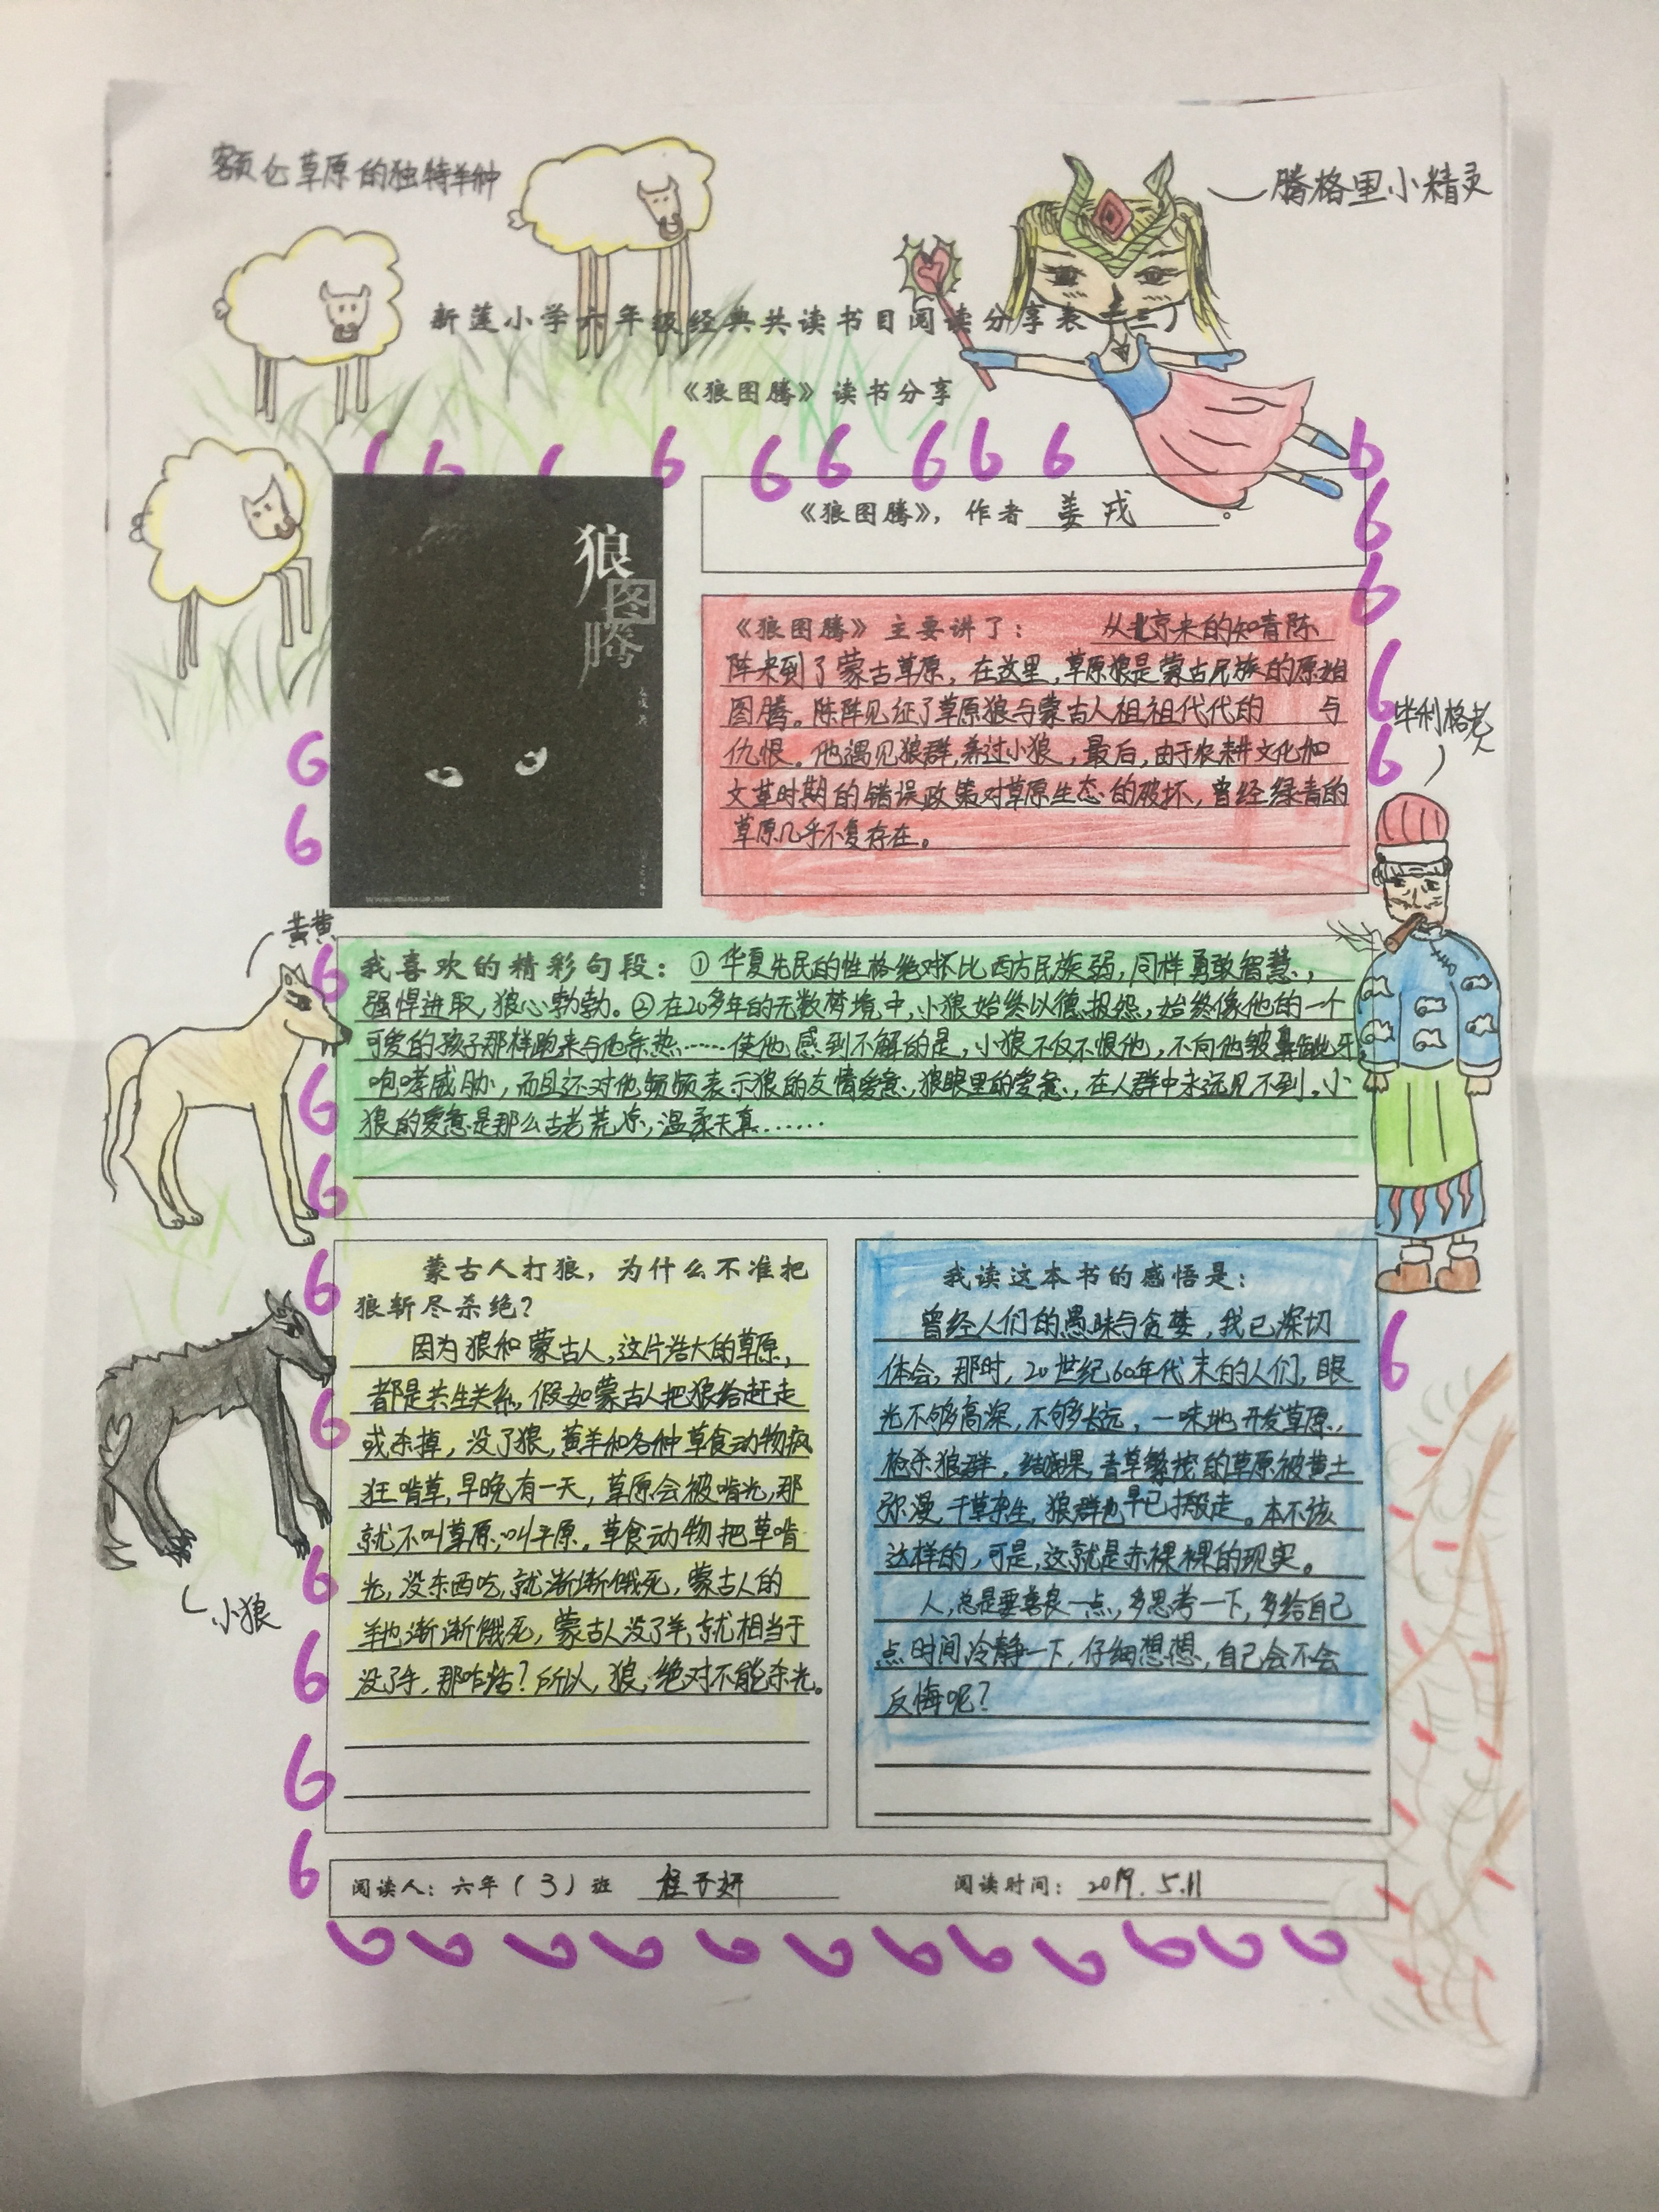 额仑草原的独特羊种
腾格里小精灵
新莲小学六年级经典共读书目阅读分享表
《狼图腾》读书分享
狼
图
腾
《狼图腾》，作者 姜戎 。
《狼图腾》主要讲了： 从北京来的知青陈
阵来到了蒙古草原，在这里，草原狼是蒙古民族的原始
图腾。陈阵见证了草原狼与蒙古人祖祖代代的 与
仇恨。他遇见狼群，养过小狼，最后，由于农耕文化和
文革时期的错误政策对草原生态的破坏，曾经绿青的
草原几乎不复存在。
毕利格老人
黄黄
我喜欢的精彩句段：①华夏先民的性格绝对不比西方民族弱，同样勇敢智慧，
强悍进取，狼心勃勃。②在20多年的无数梦境中，小狼始终以德报怨，始终像他的一个
可爱的孩子那样跑来与他亲热……使他感到不解的是，小狼不仅不恨他，不向他皱鼻龇牙，
咆哮威胁，而且还对他频频表示狼的友情爱意，狼眼里的爱意，在人群中永远见不到。小
狼的爱意是那么古老荒凉，温柔天真……
蒙古人打狼，为什么不准把
狼斩尽杀绝？
因为狼和蒙古人，这片浩大的草原，
都是共生关系，假如蒙古人把狼给赶走
或杀掉，没了狼，黄羊和各种草食动物疯
狂啃草，早晚有一天，草原会被啃光，那
就不叫草原，叫平原。草食动物把草啃
光，没东西吃，就渐渐饿死，蒙古人的
羊也渐渐饿死，蒙古人没了羊，就相当于
没了手，那咋活？所以，狼，绝对不能杀光。
小狼
我读这本书的感悟是：
曾经人们的愚昧与贪婪，我已深切
体会，那时，20世纪60年代末的人们，眼
光不够高深，不够长远，一味地开发草原，
枪杀狼群，结果，青草繁茂的草原被黄土
弥漫，干草杂生，狼群也早已搬走。本不该
这样的，可是，这就是赤裸裸的现实。
人，总是要善良一点，多思考一下，多给自己
点时间冷静一下，仔细想想，自己会不会
反悔呢？
阅读人：六年（3）班 程 妍 阅读时间：2019.5.11